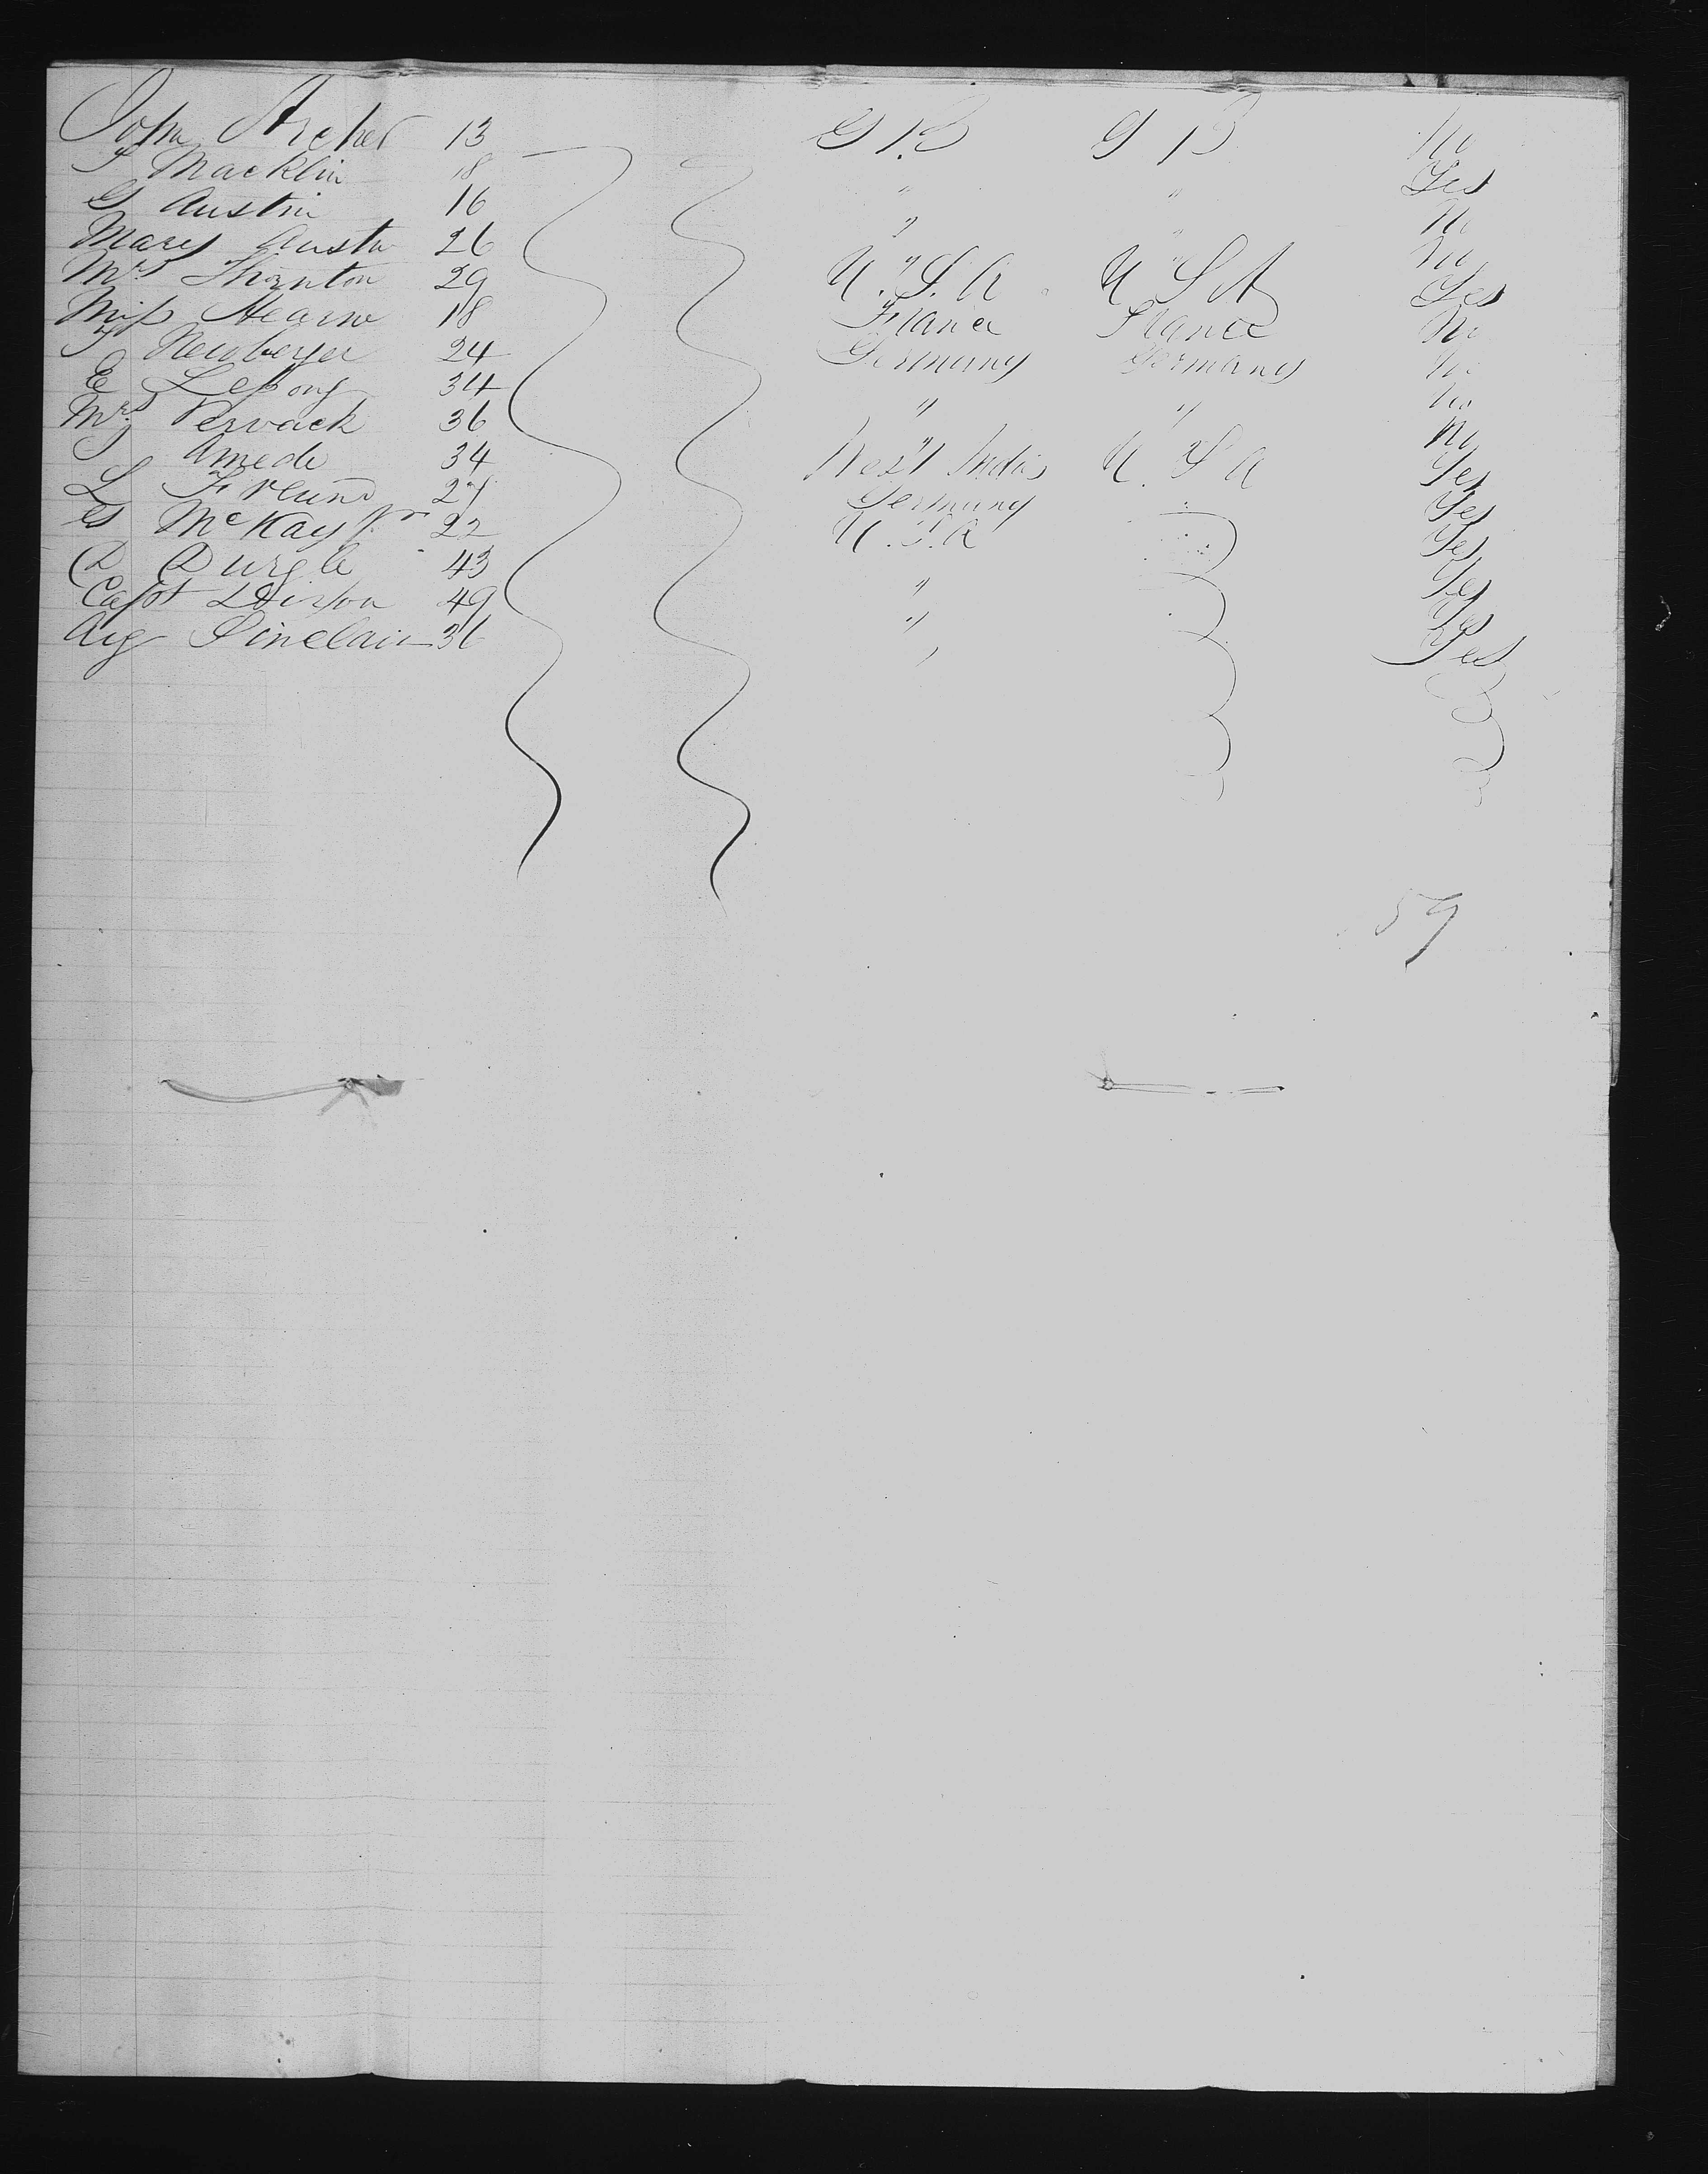 John Archer 13 G B G B No
T Macklin 18 " " Yes
G Austin 16 " " No
Mary Austin 26 " " No
Mrs Thornton 29 U.S.A. U S A Yes
Miss Hearne 18 France France No
Newberger 24 Germany Germany No
E 34 " " No
Mrs Pervack 36 " " No
J Amede 34 West Indies U.S A Yes
L Freund 27 Germany Yes
G McKay Jr 22 U.S.A Yes
D Durgle 43 " Yes
Capt Dixon 49 " Yes
Aug Sinclair 36 " Yes
59